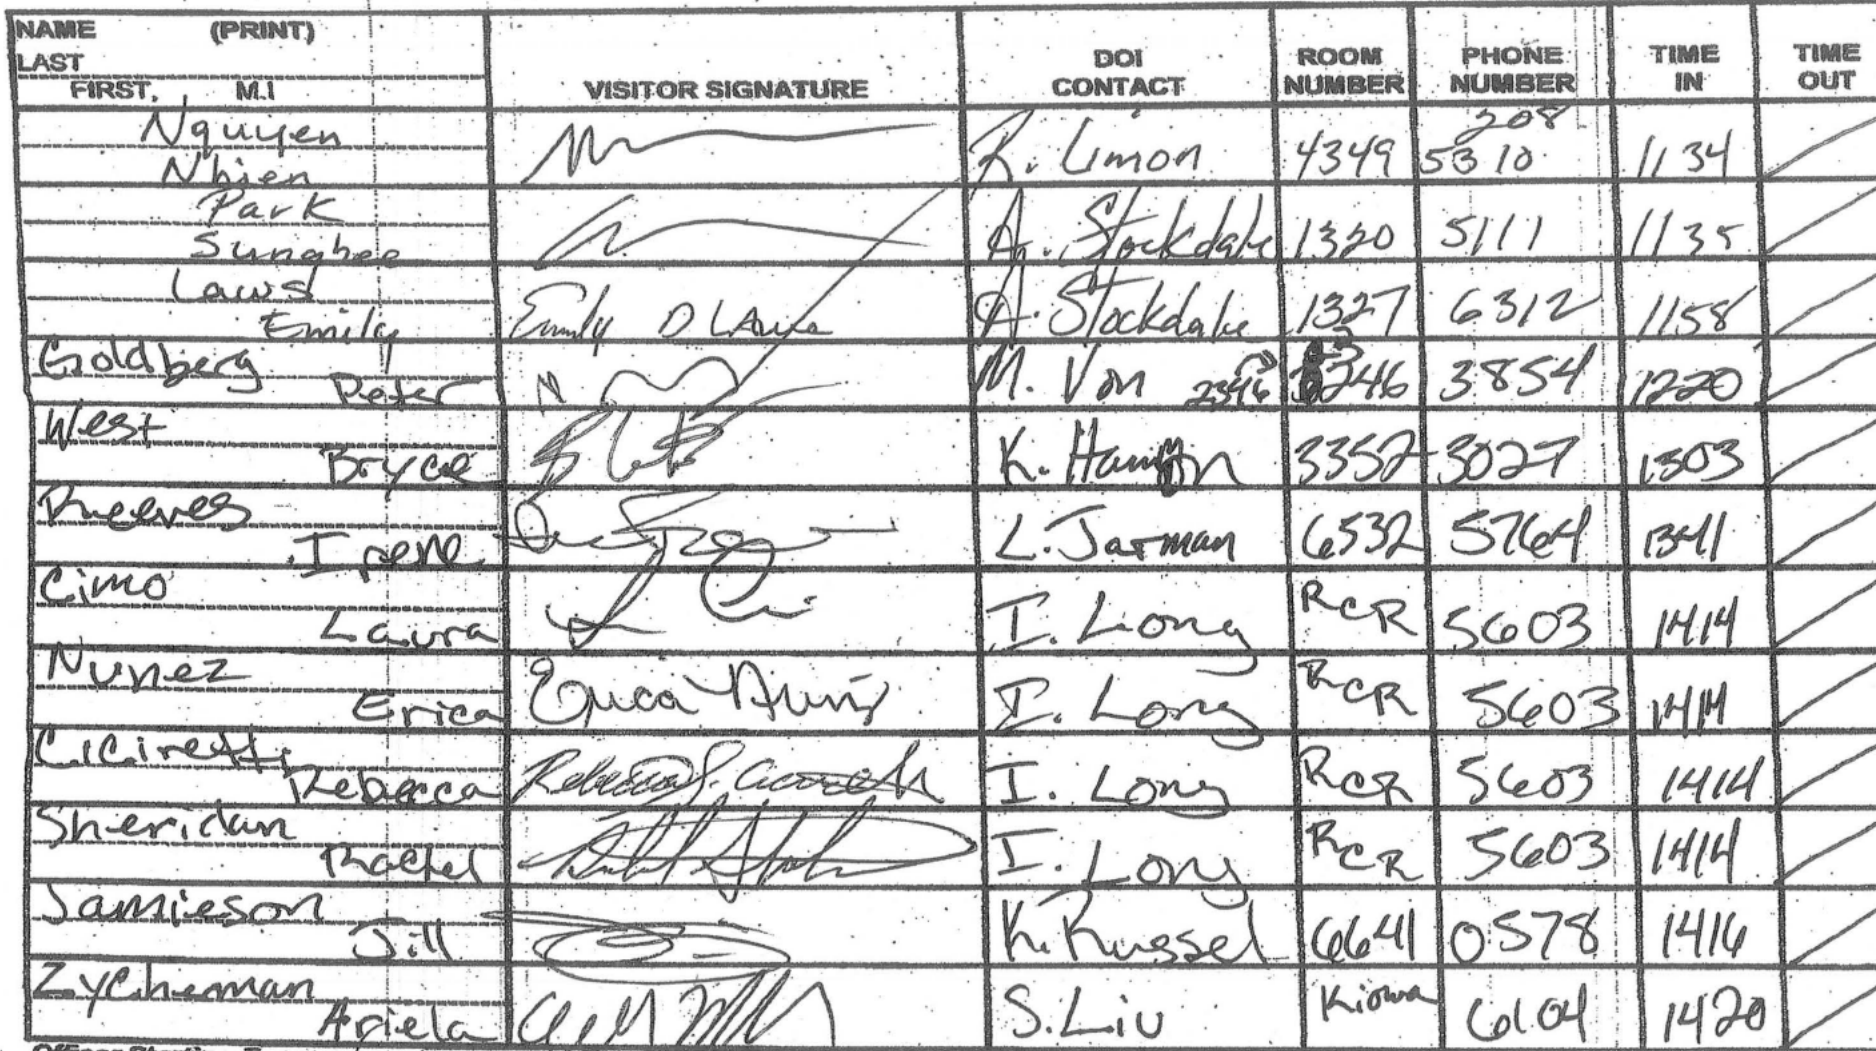 NAME (PRINT)
LAST
FIRST, M.I
VISITOR SIGNATURE
DOI CONTACT
ROOM NUMBER
PHONE NUMBER
TIME IN
TIME OUT
Nguyen
Nhien
R. Limon 4349 208 5310 1134
Park
Sunghee
A. Stockdale 1320 5111 1135
Laws
Emily
Emily D Laws A. Stockdale 1327 6312 1158
Goldberg
Peter
M. Von 2346 3854 1220
West
Bryce
K. 3352 3027 1303
Reeves
Irene
L. Jarman 6532 5764 1341
Cimo
Laura
I. Long RCR 5603 1414
Nunez
Erica
Erica Nunez I. Long RCR 5603 1414
Ciciretti
Rebecca
Rebecca I. Long RCR 5603 1414
Sheridan
Rachel
I. Long RCR 5603 1414
Jamieson
Jill
K. Russel 6641 0578 1416
Zycherman
Ariela
S. Liu Kiowa 6104 1420